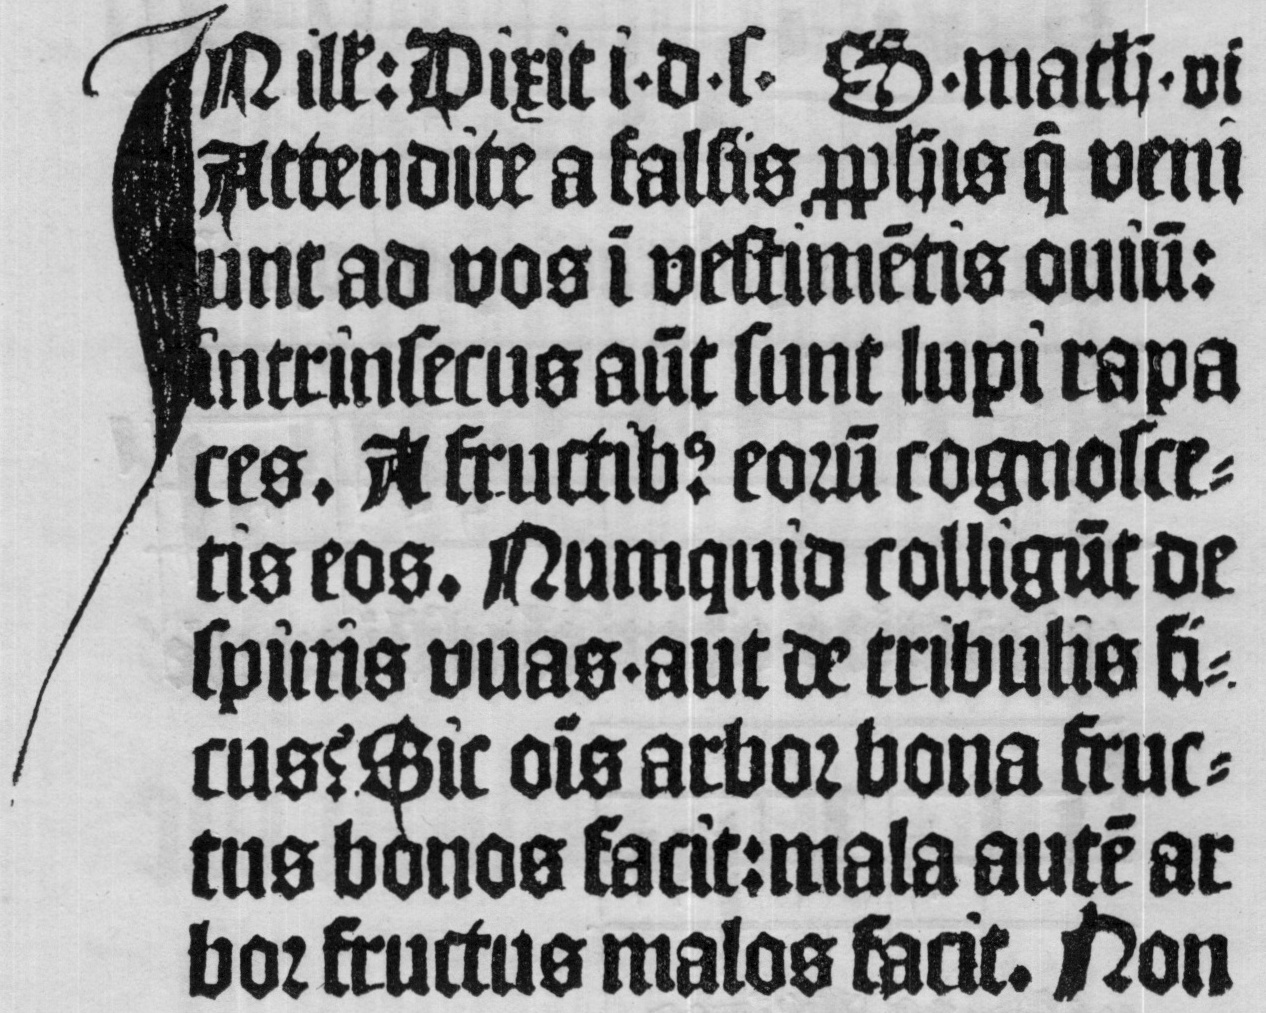 IN illꝭ: Dixit i·d·ſ· S·math̄·vi
Attendite a falſis ꝓph̄is q̄ veni
unt ad vos ī veſtimētis ouiū:
intrinſecus aūt ſunt lupi rapa
ces. A fructibꝰ eoꝛū cognoſce⸗
tis eos. Numquid colligūt de
ſpinis vuas·aut de tribulis fi⸗
cus? Sic oīs arboꝛ bona fruc⸗
tus bonos facit: mala autē ar
boꝛ fructus malos facit. Non